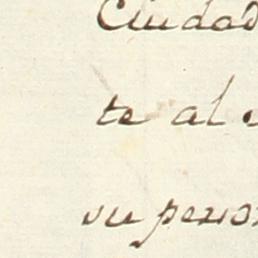 Ciudad
te al
su perso